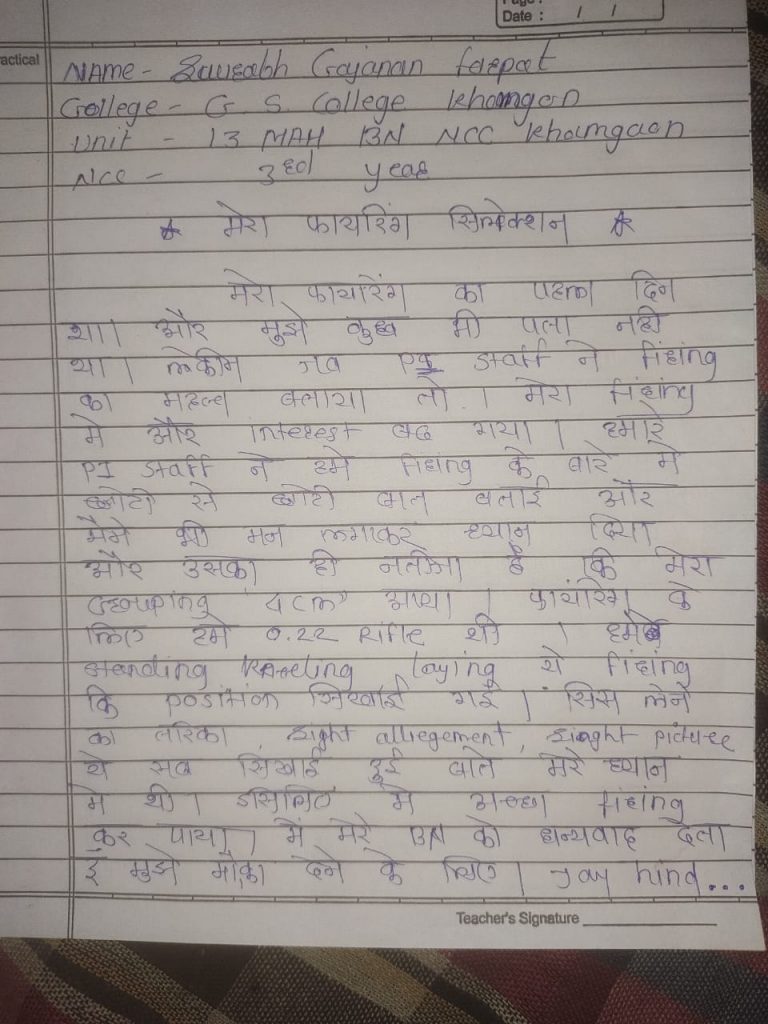 Page :
Date : / /
actical
NAme - Saurabh Gajanan
College - G. S. College Khamgaon
Unit - 13 MAH BN NCC Khamgaon
Ncc - 3rd year
☆ मेरा फायरिंग सिलेक्शन ☆
मेरा फायरिंग का पहला दिन
था। और मुझे कुछ भी पता नही
था। लेकीन जब PI staff ने firing
का महत्व बताया तो। मेरा firing
मे और interest बढ गया। हमारे
PI staff ने हमे firing के बारे मे
छोटी से छोटी बात बताई और
मैने भी मन लगाकर ध्यान दिया
और उसका ही नतीजा है कि मेरा
Grouping 4 cm आया। फायरिंग के
लिए हमे 0.22 Rifle थी। हमे
standing kneeling laying ये firing
कि position सिखाई गई। सिस लेने
का तरिका, sight alliegement, sieght picture
ये सब सिखाई हुई बाते मेरे ध्यान
मे थी। इसिलिए मे अच्छा firing
कर पाया। मैं मेरे BN को धन्यवाद देता
हूँ मुझे मौका देने के लिए। Jay hind...
Teacher's Signature